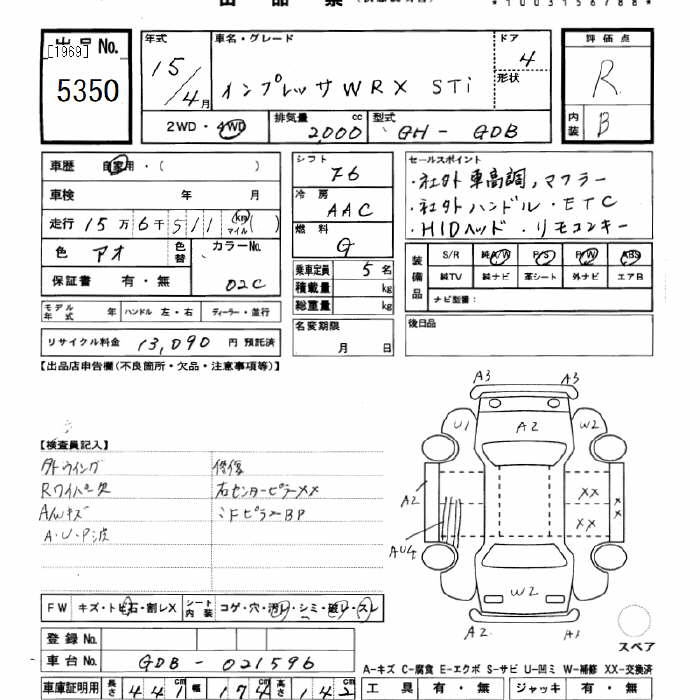 出品票
*1003156788*
出品No.
[1969]
5350
年式 15/4月
車名・グレード インプレッサWRX STi
ドア 4
形状
評価点 R
内装 B
2WD・4WD
排気量 2,000 cc
型式 GH- GDB
車歴 自家用・( )
車検 年 月
走行 15万6千511 (km マイル)( )
色 アオ
色替
カラーNo. 02C
保証書 有・無
モデル年式 年
ハンドル 左・右
ディーラー・並行
リサイクル料金 13,090 円 預託済
シフト F6
冷房 AAC
燃料 G
乗車定員 5 名
積載量 kg
総重量 kg
名変期限 月 日
セールスポイント
・社外車高調,マフラー
・社外ハンドル・ETC
・HIDヘッド・リモコンキー
装備品
S/R 純A/W P/S P/W ABS
純TV 純ナビ 革シート 外ナビ エアB
ナビ型番:
後日品
【出品店申告欄(不良箇所・欠品・注意事項等)】
【検査員記入】
外トウイング 修復
Rワイパー欠 右センターピラーXX
A/Wキズ ミドピラーBP
A・U・P波
A3 A3
U1 A2 W2
A2 XX XX
XX
AU4
W2
A2 A3
スペア
FW キズ・トビ石・割レX
シート内装 コゲ・穴・汚レ・シミ・破レ・スレ
登録No.
車台No. GDB-021596
A-キズ C-腐食 E-エクボ S-サビ U-凹ミ W-補修 XX-交換済
車庫証明用 長さ 441cm 幅 174cm 高さ 142cm
工具 有・無 ジャッキ 有・無